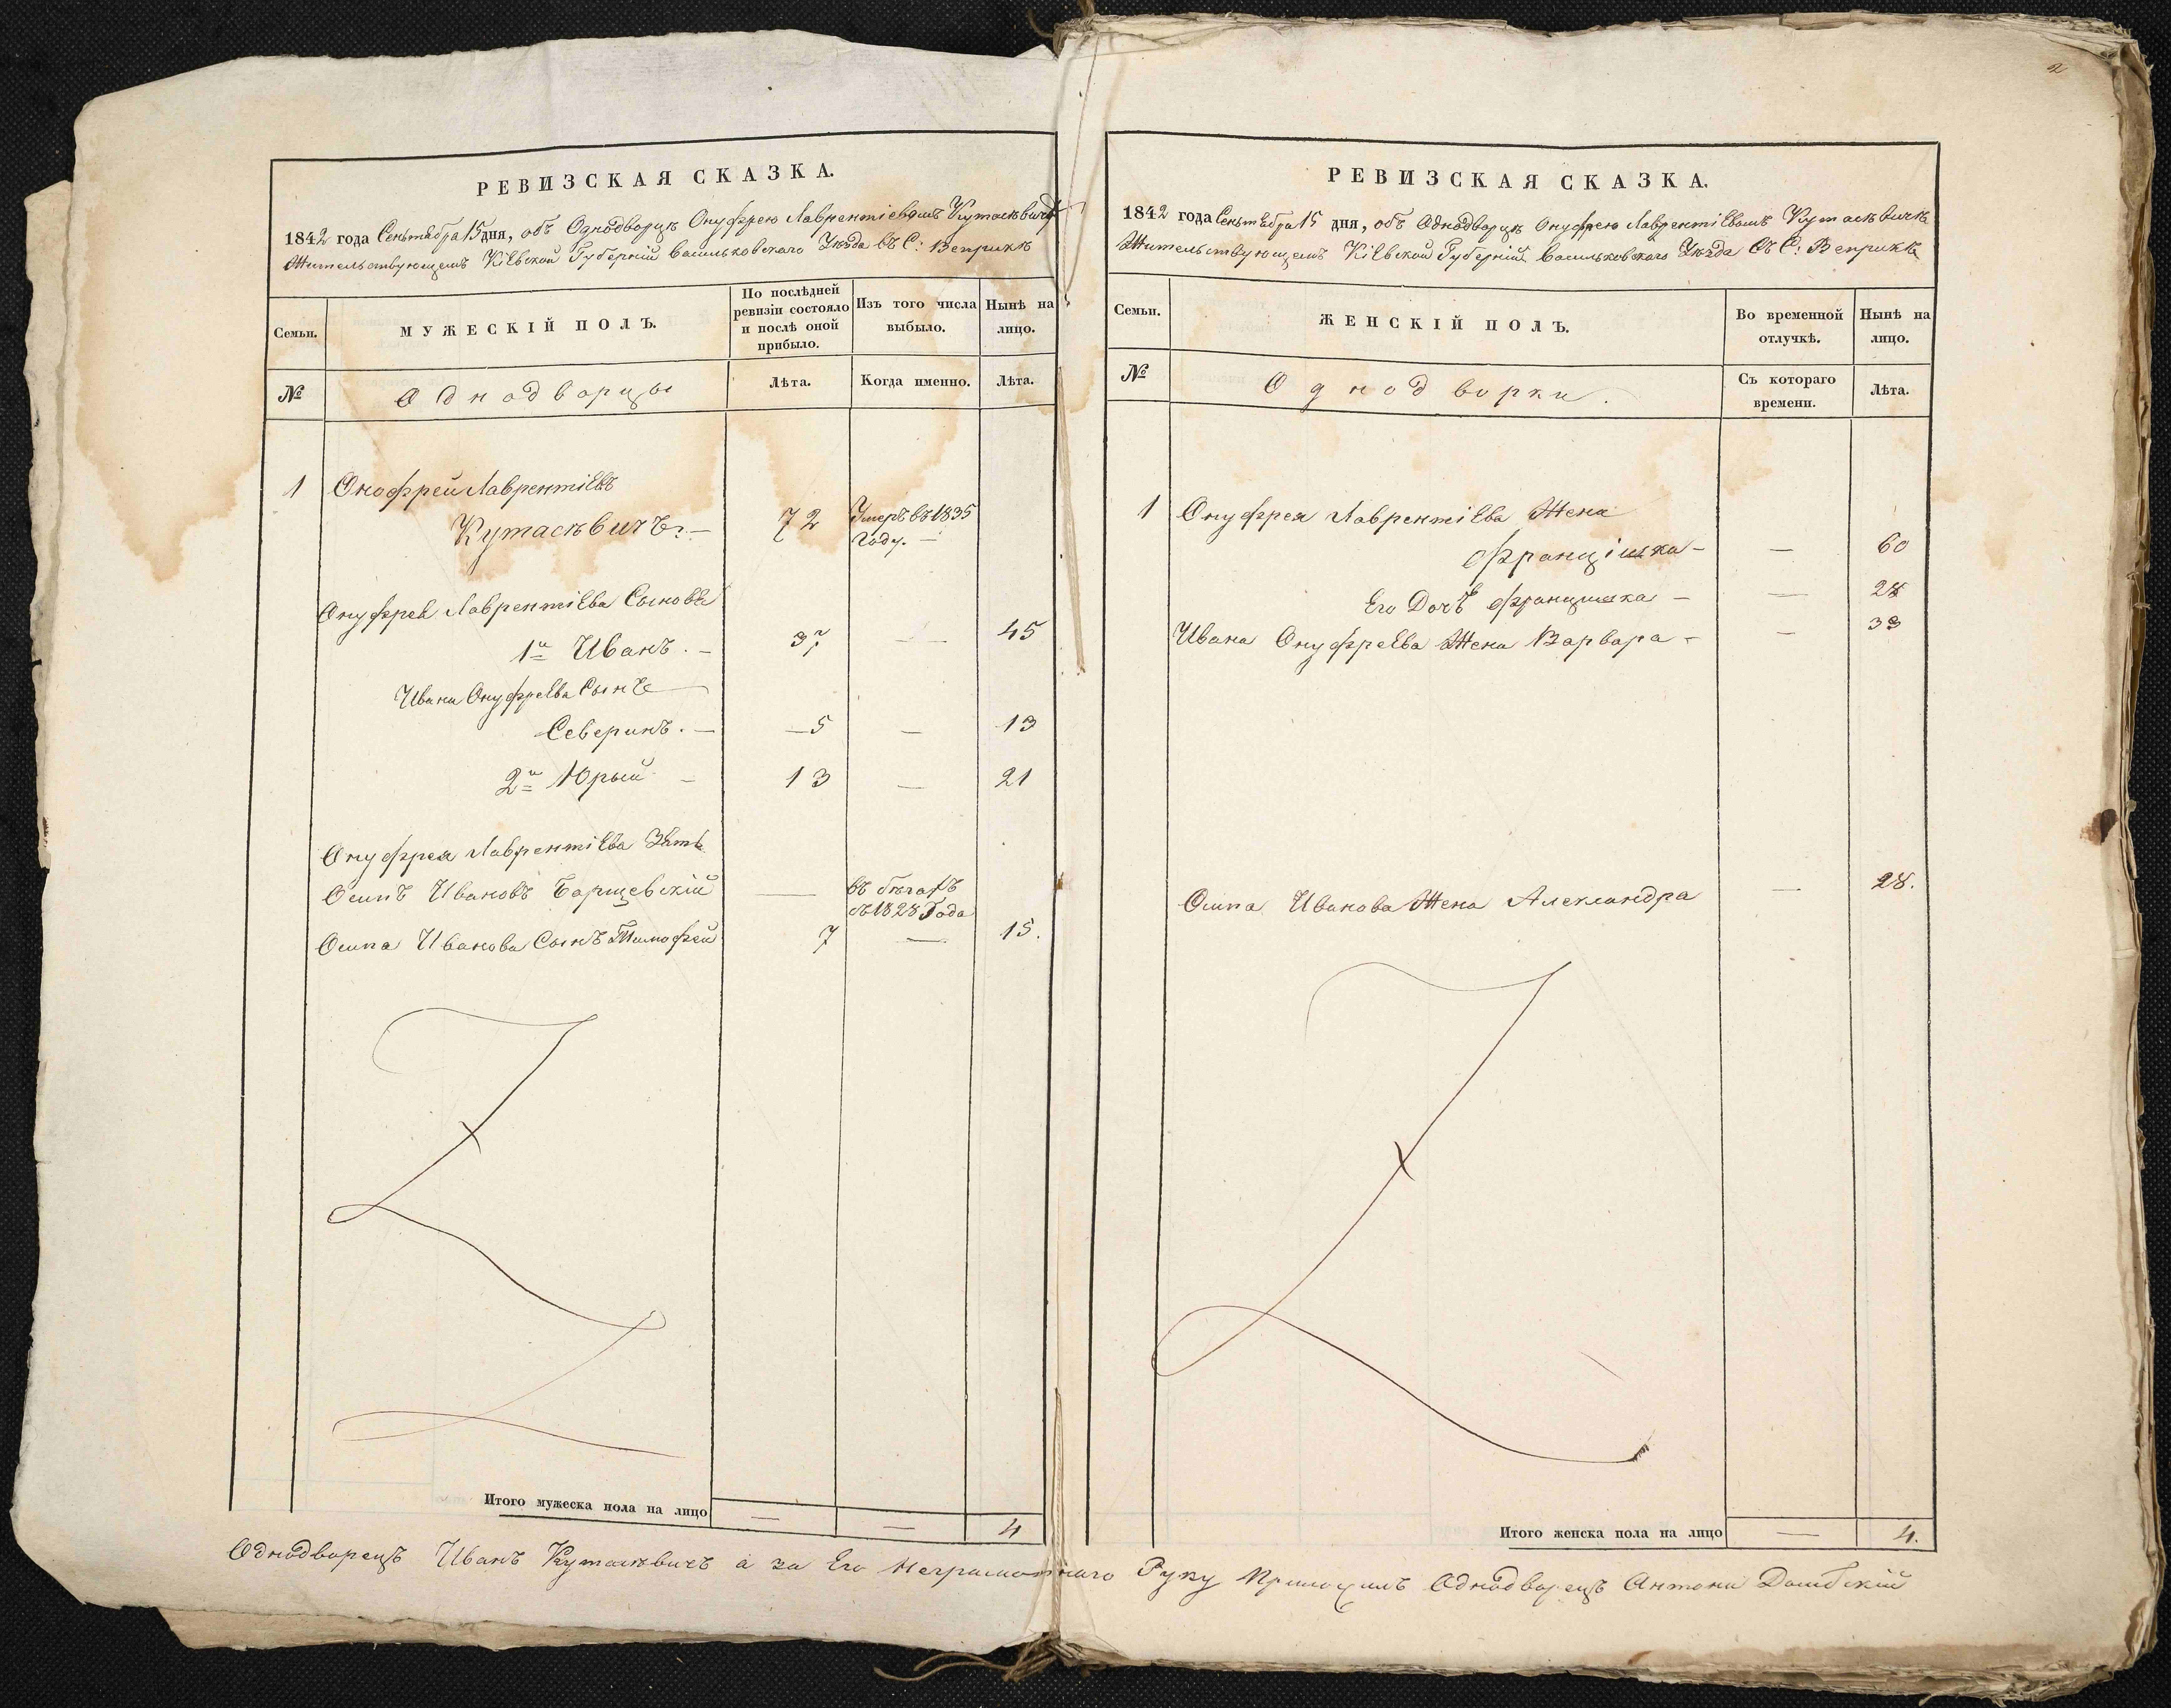 2
РЕВИЗСКАЯ СКАЗКА.
1842 года Сентебра 15 дня, объ Однодворцѣ Онуфрею Лаврентіевомъ Кутасѣвичѣ
Жительствующемъ Кіевской Губерніи Васильковскаго Уѣзда въ С: Веприкѣ
Семьи.
МУЖЕСКІЙ ПОЛЪ.
По послѣдней ревизіи состояло и послѣ оной прибыло.
Изъ того числа выбыло.
Нынѣ на лицо.
№
Однодворцы
Лѣта.
Когда именно.
Лѣта.
1 Онофрей Лаврентіевъ
Кутасѣвичъ 72 Умеръ въ 1835
году. —
Онуфрея Лаврентіева Сыновья
1й Иванъ. — 37 — 45
Ивана Онуфреева Сынъ
Северинъ. — 5 — 13
2й Юрый — 13 — 21
Онуфрея Лаврентіева Зять
Осипъ Ивановъ Борщевскій — въ бѣгахъ
съ 1828 Года
Осипа Иванова Сынъ Тимофей 7 — 15.
Итого мужеска пола на лицо — — 4
РЕВИЗСКАЯ СКАЗКА.
1842 года Сентебра 15 дня, объ Однодворцѣ Онуфрею Лаврентіевомъ Кутасѣвичѣ
Жительствующемъ Кіевской Губерніи Васильковскаго Уѣзда Въ С: Веприкѣ
Семьи.
ЖЕНСКІЙ ПОЛЪ.
Во временной отлучкѣ.
Нынѣ на лицо.
№
Однодворки.
Съ котораго времени.
Лѣта.
1 Онуфрея Лаврентіева Жена
Францішка — — 60
Его Дочь Францишка — — 28
Ивана Онуфреева Жена Варвара — — 33
Осипа Иванова Жена Александра — 28.
Итого женска пола на лицо — 4.
Однодворецъ Иванъ Кутасѣвичъ а за Его Неграмотнаго Руку Приложилъ Однодворецъ Антони Домбскій